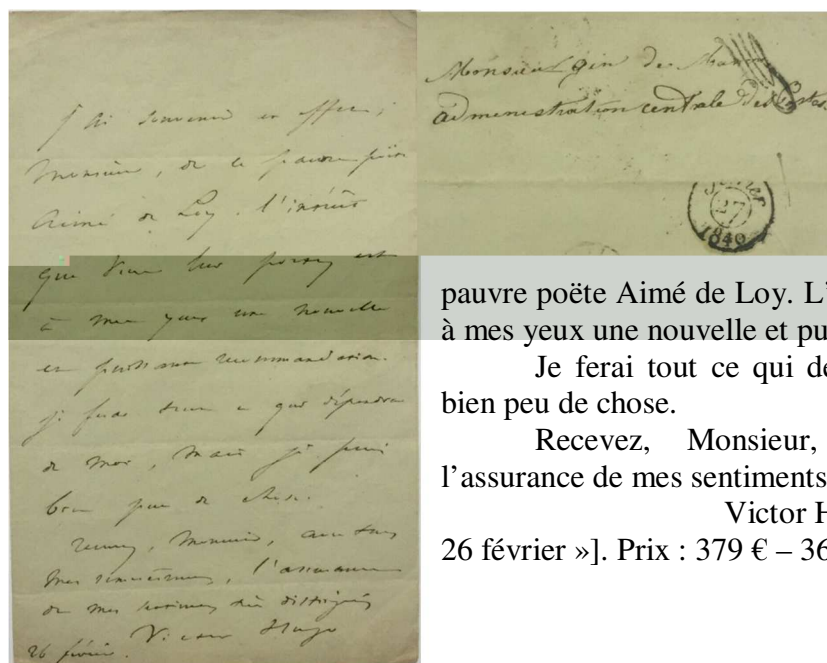 J'ai souvenir en effet,
Monsieur, de ce pauvre poëte
Aimé de Loy. L'intérêt
que vous lui portez est
à mes yeux une nouvelle
et puissante recommandation.
je ferai tout ce qui dépendra
de moi, mais je puis
bien peu de chose.
recevez, Monsieur, avec tous
mes l'assurance
de mes sentimens très distingués
Victor Hugo
26 février.
Monsieur de
administration centrale des Postes
27
1840
pauvre poëte Aimé de Loy. L'
à mes yeux une nouvelle et pu
Je ferai tout ce qui dé
bien peu de chose.
Recevez, Monsieur,
l'assurance de mes sentiments
Victor H
26 février »]. Prix : 379 € – 36